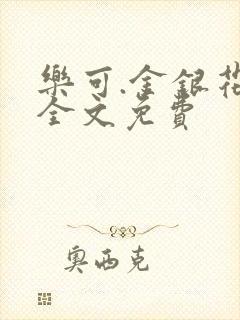 樂可.金銀花
全文免費
奧西克